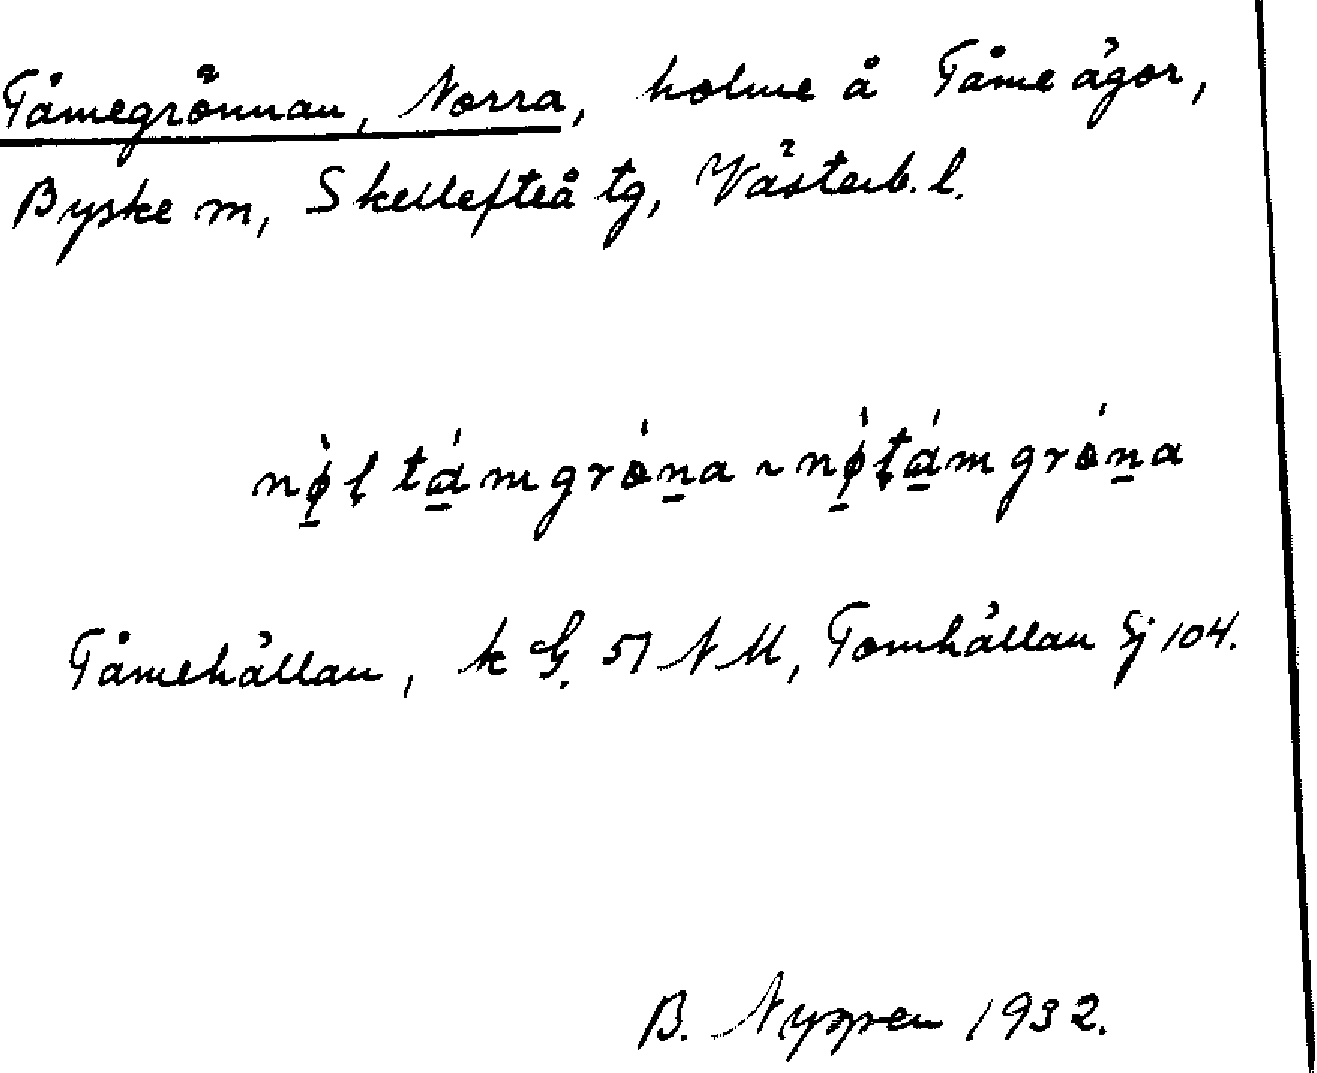 Tåmegrönnan, Norra, holme å Tåme ägor,
Byske sn, Skellefteå tg, Västerb. l.
nǿ̠ḷ tá̠mgrön̠a ~ nǿ̠ḷtá̠mgrön̠a
Tåmehällan, k G. 51 N M, Tomhällan Sj 104.
B. 1932.